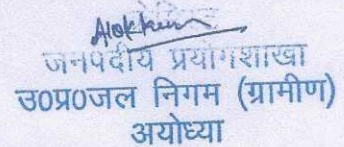 Alok Kumar
जनपदीय प्रयोगशाखा
उ०प्र०जल निगम (ग्रामीण)
अयोध्या